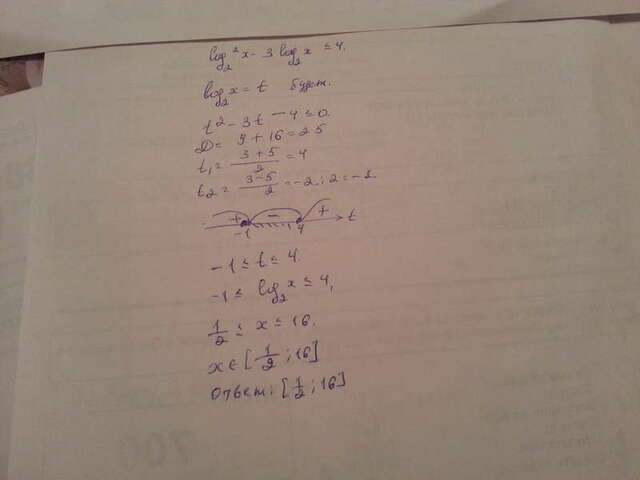 log₂²x - 3 log₂x ≤ 4.
log₂x = t будет.
t² - 3t - 4 ≤ 0
D = 9 + 16 = 25
t₁ = (3+5)/2 = 4
t₂ = (3-5)/2 = -2 : 2 = -1.
+ - + t
-1 4
-1 ≤ t ≤ 4.
-1 ≤ log₂x ≤ 4,
1/2 ≤ x ≤ 16.
x ∈ [1/2 ; 16]
Ответ: [1/2 ; 16]
700